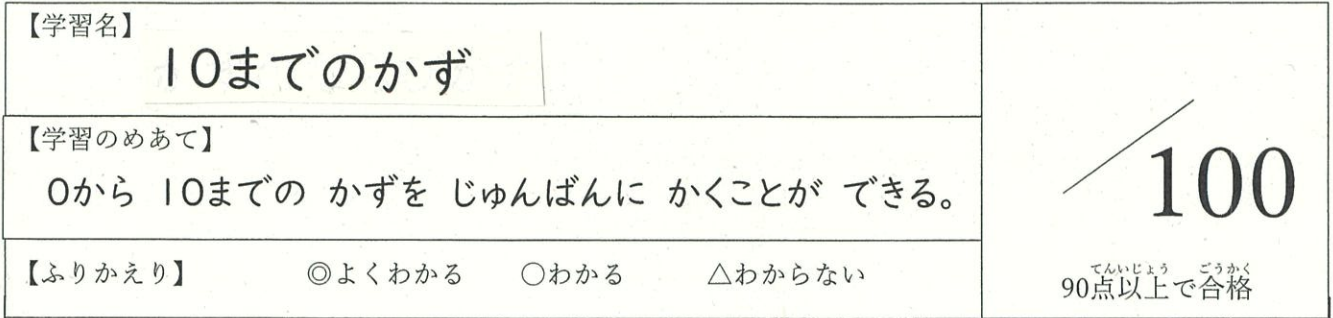 【学習名】
10までのかず
【学習のめあて】
0から 10までの かずを じゅんばんに かくことが できる。
【ふりかえり】 ◎よくわかる ○わかる △わからない
/100
てんいじょう ごうかく
90点以上で合格